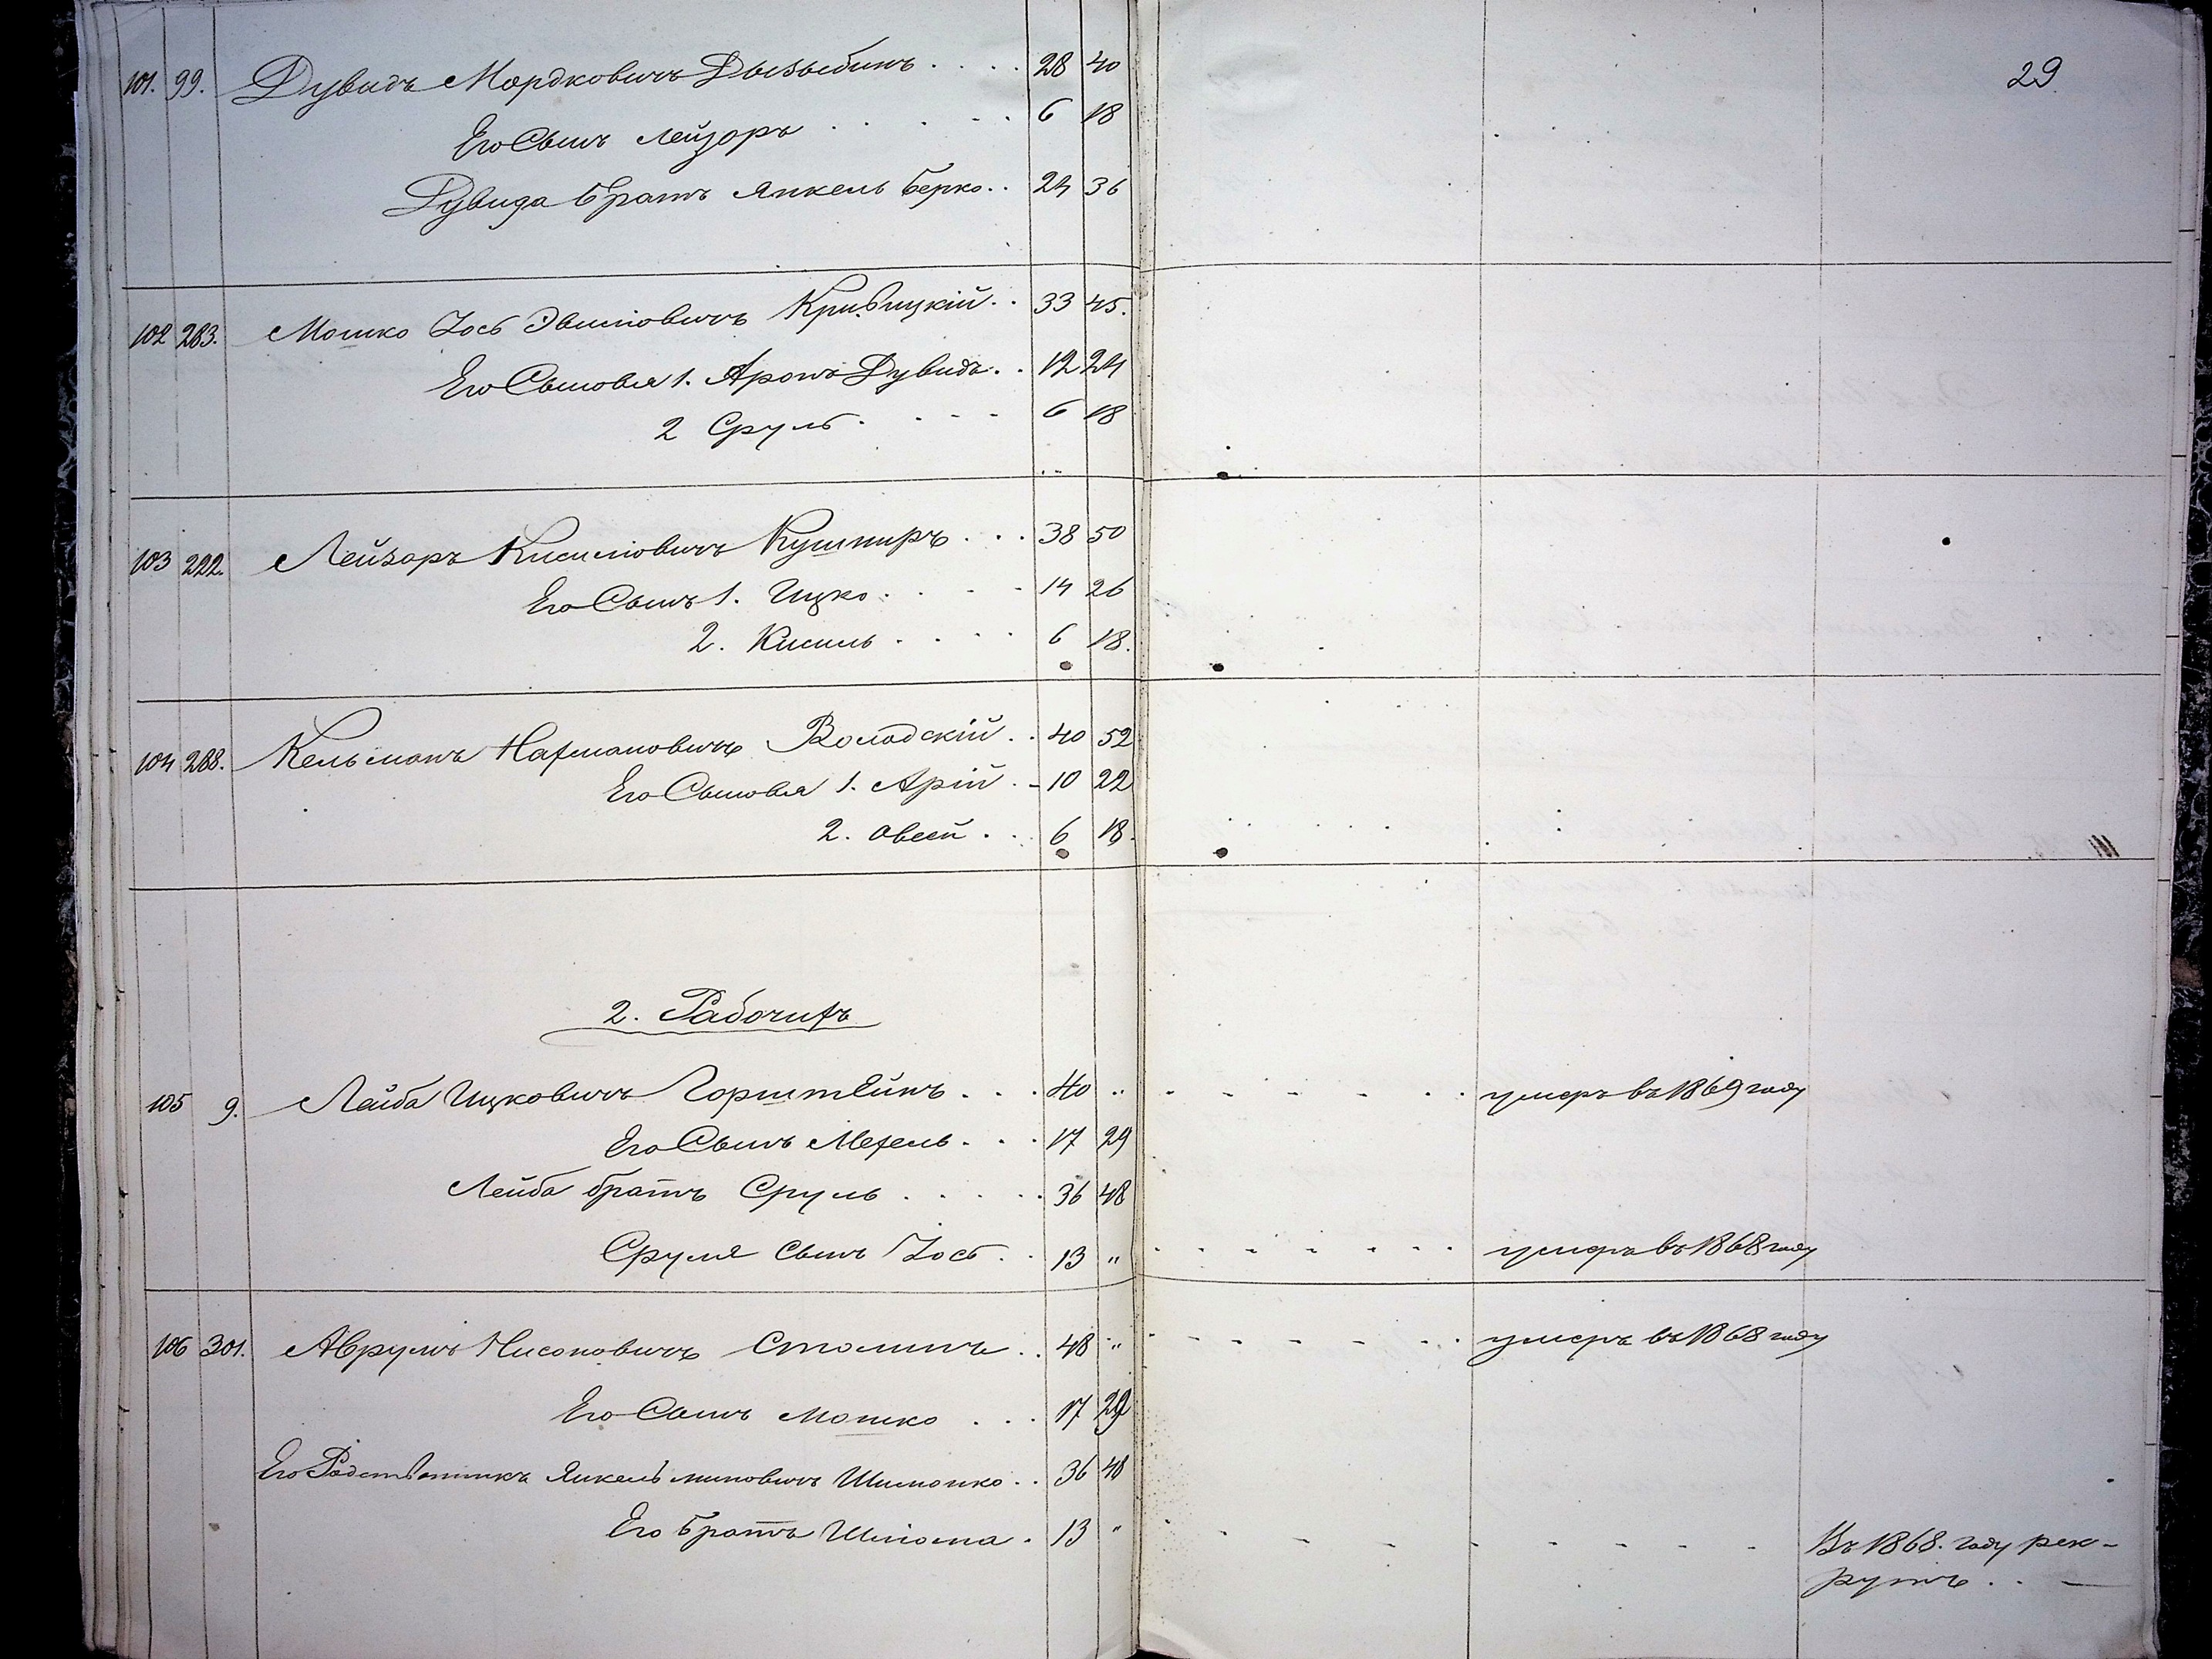 29
101. 99. Дувидъ Мордковичъ Дызыбинъ . . . . 28 40
Его Сынъ Лейзоръ . . . . . 6 18
Дувида братъ Янкель Берко . . 24 36
102 283. Мошко Іось Эвшіовичъ Кривицкій . . 33 45.
Его Сыновья 1. Аронъ Дувидъ . . 12 24
2 Сруль . . . . 6 18
103 222. Лейзоръ Кисиліовичъ Кушниръ . . . 38 50
Его Сынъ 1. Ицко . . . . 14 26
2. Кисиль . . . . 6 18.
104 288. Кельманъ Нахмановичъ Володскій . . 40 52
Его Сыновья 1. Арій . . 10 22
2. Овсей . . . 6 18.
2. Рабочихъ
105 9. Лейба Ицковичъ Горштейнъ . . . 40 " . . . . . . умеръ въ 1869 году
Его Сынъ Мехель . . . 17 29
Лейба братъ Сруль . . . . . 36 48
Сруля сынъ Іось . . 13 " . . . . . . умеръ въ 1868 году
106 301. Аврумъ Нисоновичъ Столинъ . . 48 " . . . . . . умеръ въ 1868 году
Его Сынъ Мошко . . . 17 29
Его Родственникъ Янкель Миновичъ Шимонко . . 36 48
Его братъ Шліома . 13 " . . . . . . Въ 1868. году рек-
рутъ . . —